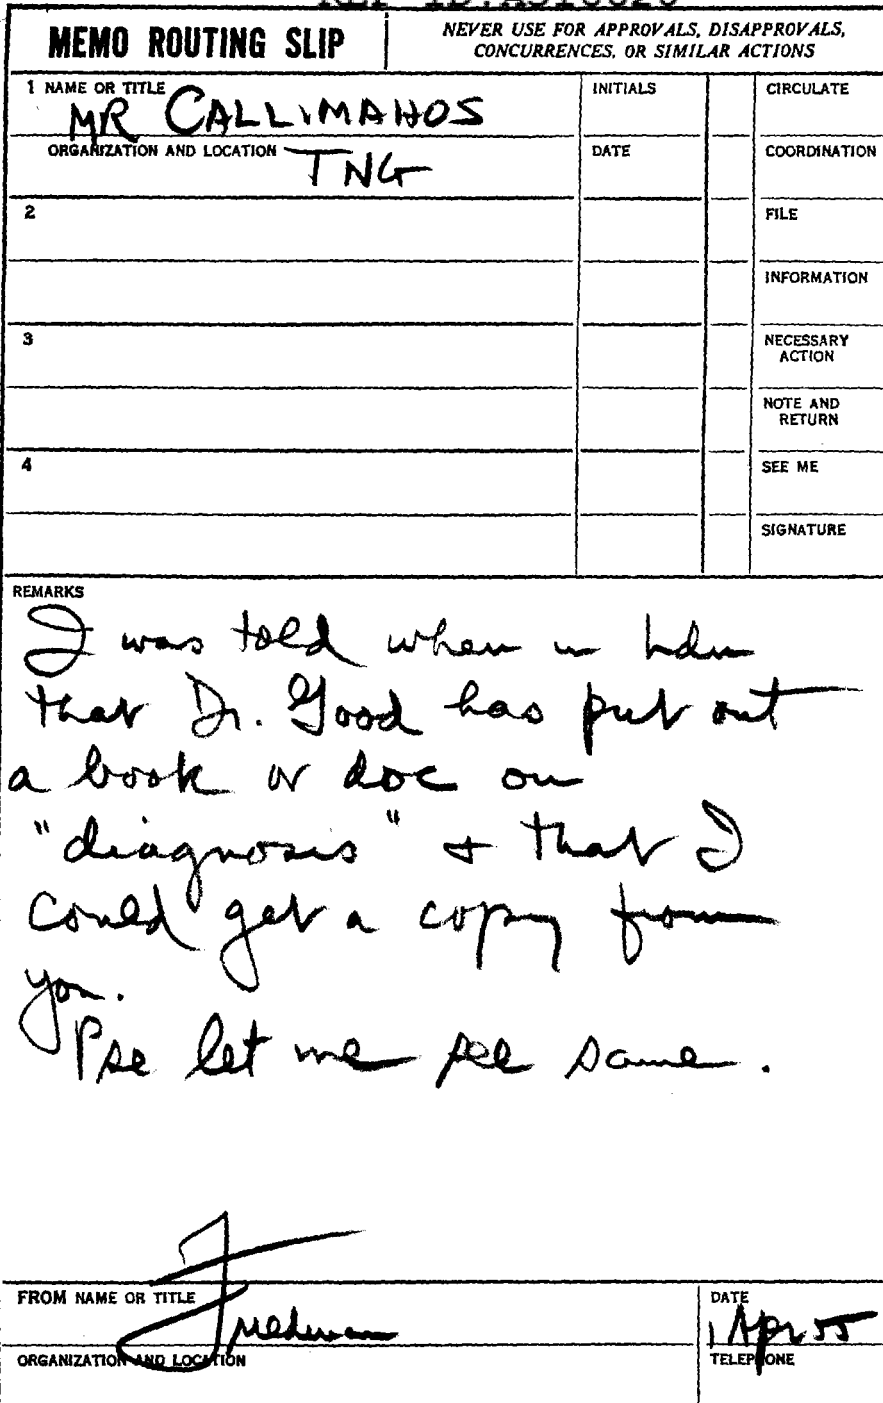 MEMO ROUTING SLIP
NEVER USE FOR APPROVALS, DISAPPROVALS,
CONCURRENCES, OR SIMILAR ACTIONS
1 NAME OR TITLE
MR CALLIMAHOS
INITIALS
CIRCULATE
ORGANIZATION AND LOCATION
TNG
DATE
COORDINATION
2
FILE
INFORMATION
3
NECESSARY
ACTION
NOTE AND
RETURN
4
SEE ME
SIGNATURE
REMARKS
I was told when in Ldn
that Dr. Good has put out
a book or doc on
"diagnosis" & that I
could get a copy from
you.
Pse let me see same.
FROM NAME OR TITLE
Friedman
DATE
1 Apr 55
ORGANIZATION AND LOCATION
TELEPHONE